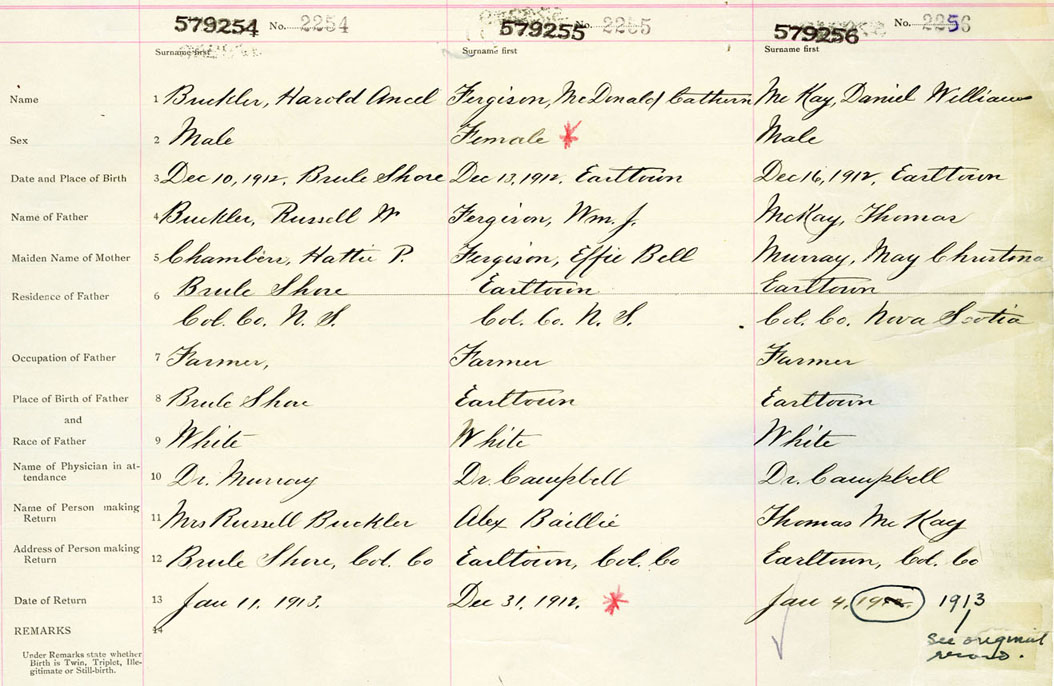 579254 No. 2254 579255 No. 2255 579256 No. 2256
Surname first Surname first Surname first
Name 1 Buckler, Harold Ancel Fergison, McDonald Cathern McKay, Daniel William
Sex 2 Male Female * Male
Date and Place of Birth 3 Dec 10, 1912, Brule Shore Dec 13, 1912, Earltown Dec 16, 1912, Earltown
Name of Father 4 Buckler, Russell W Fergison, Wm. J. McKay, Thomas
Maiden Name of Mother 5 Chambers, Hattie P. Fergison, Effie Bell Murray, May Christina
Residence of Father 6 Brule Shore Earltown Earltown
Col. Co. N. S. Col. Co. N. S. Col. Co. Nova Scotia
Occupation of Father 7 Farmer, Farmer Farmer
Place of Birth of Father 8 Brule Shore Earltown Earltown
and
Race of Father 9 White White White
Name of Physician in at-
tendance 10 Dr. Murray Dr. Campbell Dr. Campbell
Name of Person making
Return 11 Mrs Russell Buckler Alex Baillie Thomas McKay
Address of Person making
Return 12 Brule Shore, Col. Co Earltown, Col. Co Earltown, Col. Co
Date of Return 13 Jan 11. 1913. Dec 31, 1912. * Jan 4, 1913
REMARKS 14
See original
record.
Under Remarks state whether
Birth is Twin, Triplet, Ille-
gitimate or Still-birth.